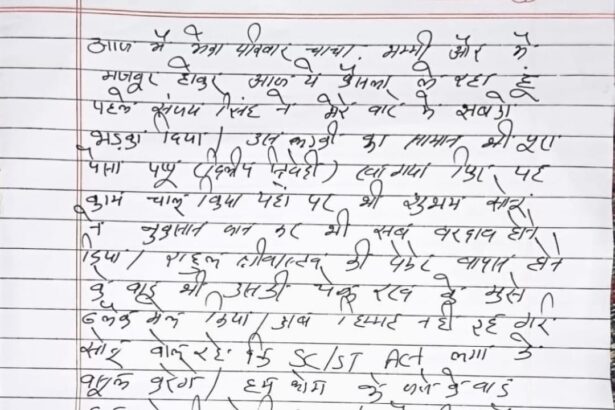 आज मैं मेरा परिवार चाचा, मम्मी और में
मजबूर होकर आज ये फैसला ले रहा हूं
पहले संजय सिंह ने मेरे बारे में सबको
भड़का दिया / उस का सामान भी पूरा
पैसा पप्पू (दिलीप त्रिवेदी) खा गया फिर यह
काम चालू किया यहां पर भी शुभम सोनू
ने नुकसान जान कर भी सब बरबाद होने
दिया / राहुल श्रीवास्तव की पेमेंट वापस होने
के बाद भी उसकी चेक रख के मुझे
ब्लैक मेल किया / अब हिम्मत नही रह गई
सोनू बोल रहे कि SC/ST Act लगा के
वसूल करेंगे / हम लोगो के जाने के बाद